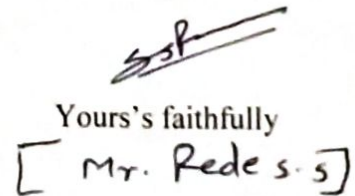 SSR
Yours's faithfully
[ Mr. Rede s.s]